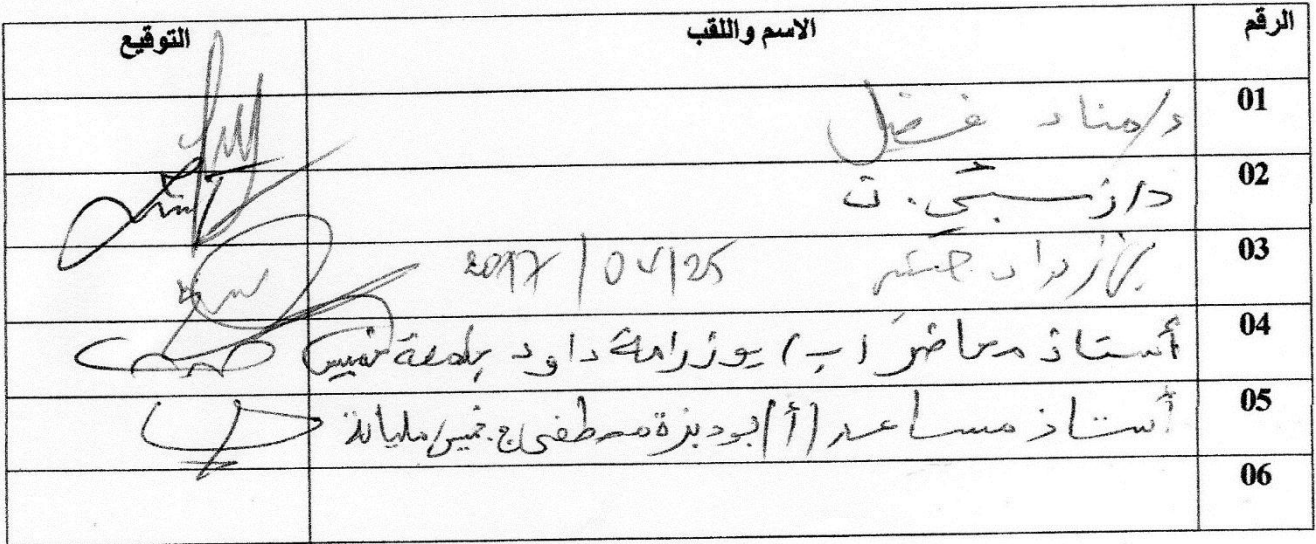 الرقم الاسم واللقب التوقيع
01 د/مناد فضيل
02 د/ ت
03 2017/04/25
04 أستاذ محاضر (ب) بوزرامة داود بجامعة خميس
05 أستاذ مساعد (أ) بودبزة مصطفى ج. خميس مليانة
06